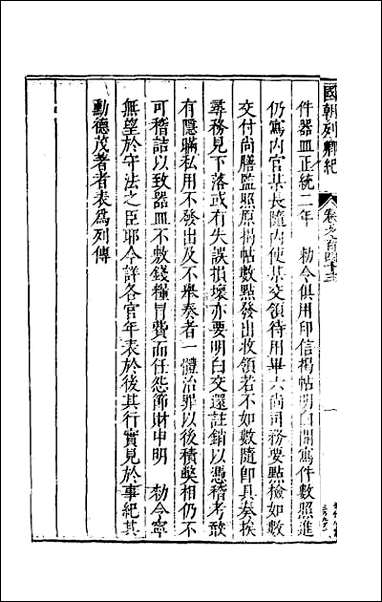 國朝列卿紀
卷之百四十三
一
件器皿正統二年　勑令俱用印信揭帖明白開寫件數照進
仍寫內官某長隨內使某交領待用畢六尚司務要點檢如數
交付尚膳監照原揭帖數點發出收領若不如數隨即具奏挨
尋務見下落或有失誤損壞亦要明白交還註銷以憑稽考敢
有隱瞞私用不發出及不舉奏者一體治罪以後積獘相仍不
可稽詰以致器皿不敷錢糧冒費而任怨節財申明　勑令寧
無望於守法之臣耶今詳各官年表於後其行實見於事紀其
勳德茂著者表爲列傳